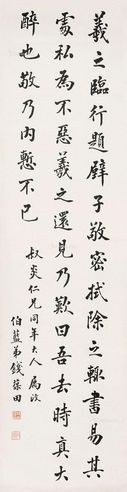 羲之臨行題壁子敬密拭除之輒書易其
處私為不惡羲之還見乃歎曰吾去時真大
醉也敬乃內慙不已
叔炎仁兄同年大人屬政
伯藍弟錢葆田